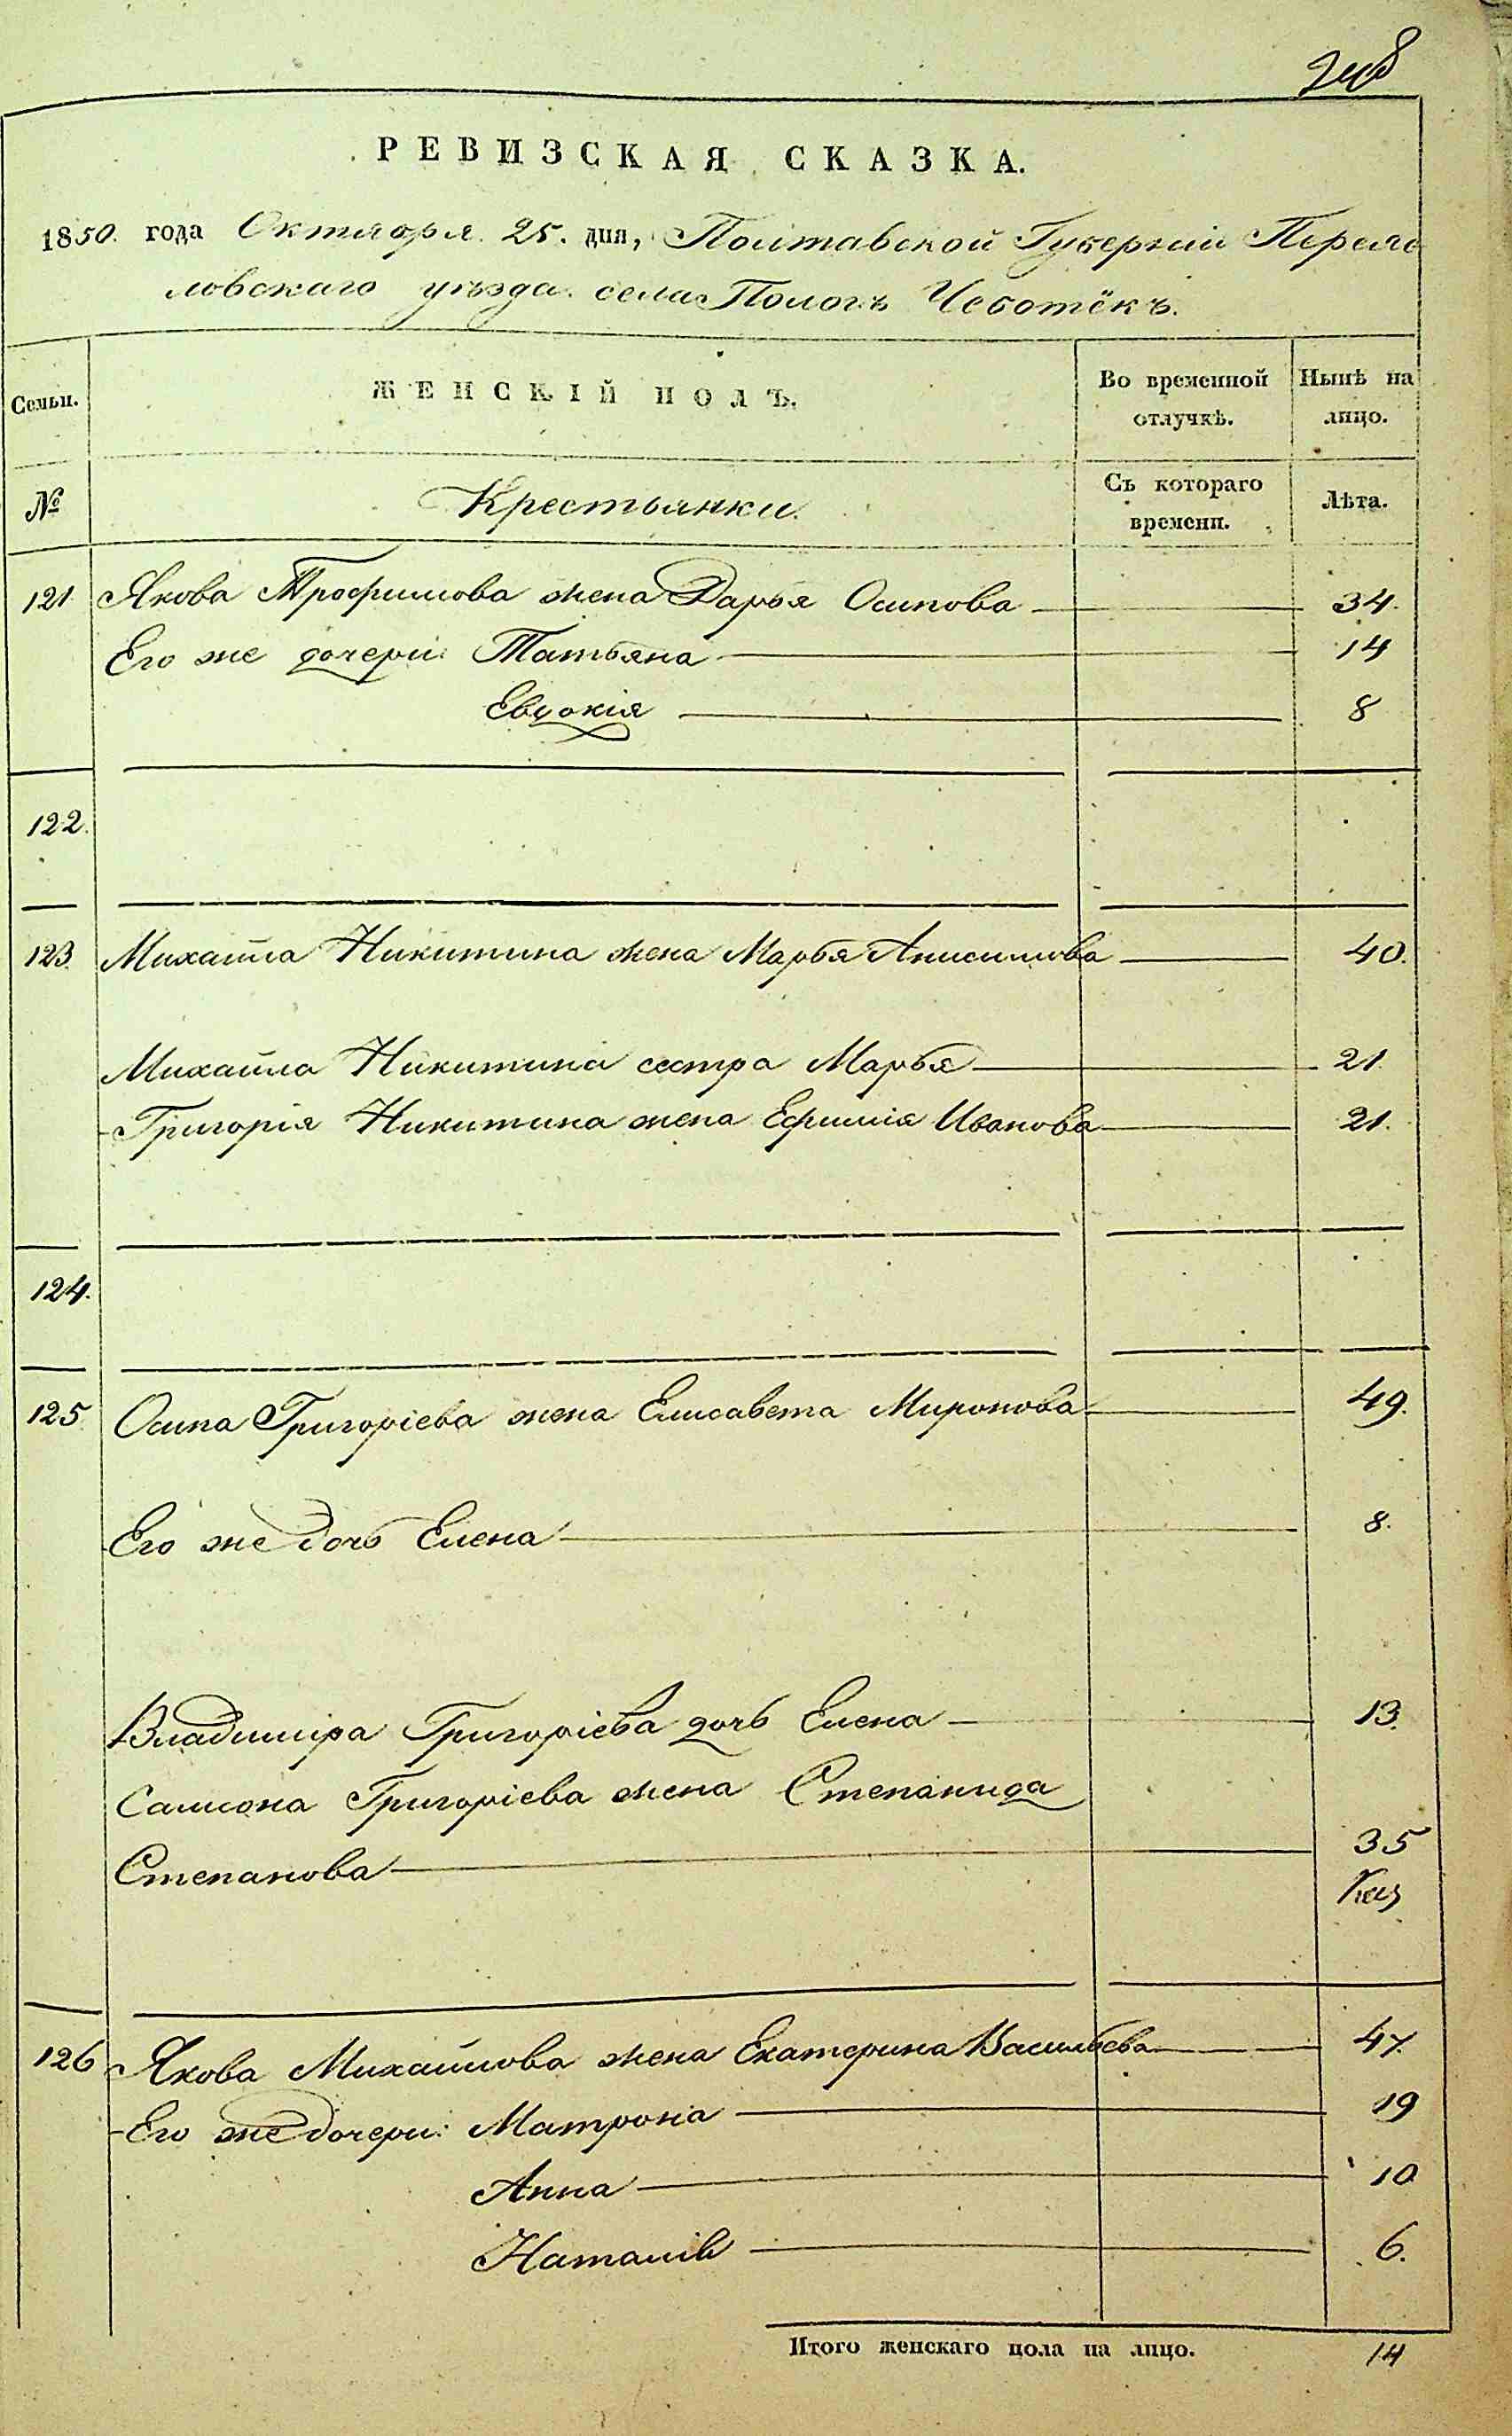 248
РЕВИЗСКАЯ СКАЗКА.
1850. года Октября. 25. дня, Полтавской Губерніи Переяс
ловскаго уѣзда. села Пологъ Чеботёкъ.
Семьи. ЖЕНСКІЙ ПОЛЪ. Во временной отлучкѣ. Нынѣ на лицо.
№ Крестьянки. Съ котораго времени. Лѣта.
121 Якова Трофимова жена Дарья Осипова 34.
Его же дочери: Татьяна 14
Евдокія 8
122.
123. Михайла Никитина жена Марья Анисимова 40.
Михайла Никитина сестра Марья 21
Григорія Никитина жена Ефимія Иванова 21.
124.
125 Осипа Григоріева жена Елисавета Миронова 49.
Его же дочь Елена 8.
Владиміра Григоріева дочь Елена 13.
Самсона Григоріева жена Степанида
Степанова 35
126 Якова Михайлова жена Екатерина Васильева 47.
Его же дочери: Матрона 19
Анна 10
Наталія 6.
Итого женскаго пола на лицо. 14